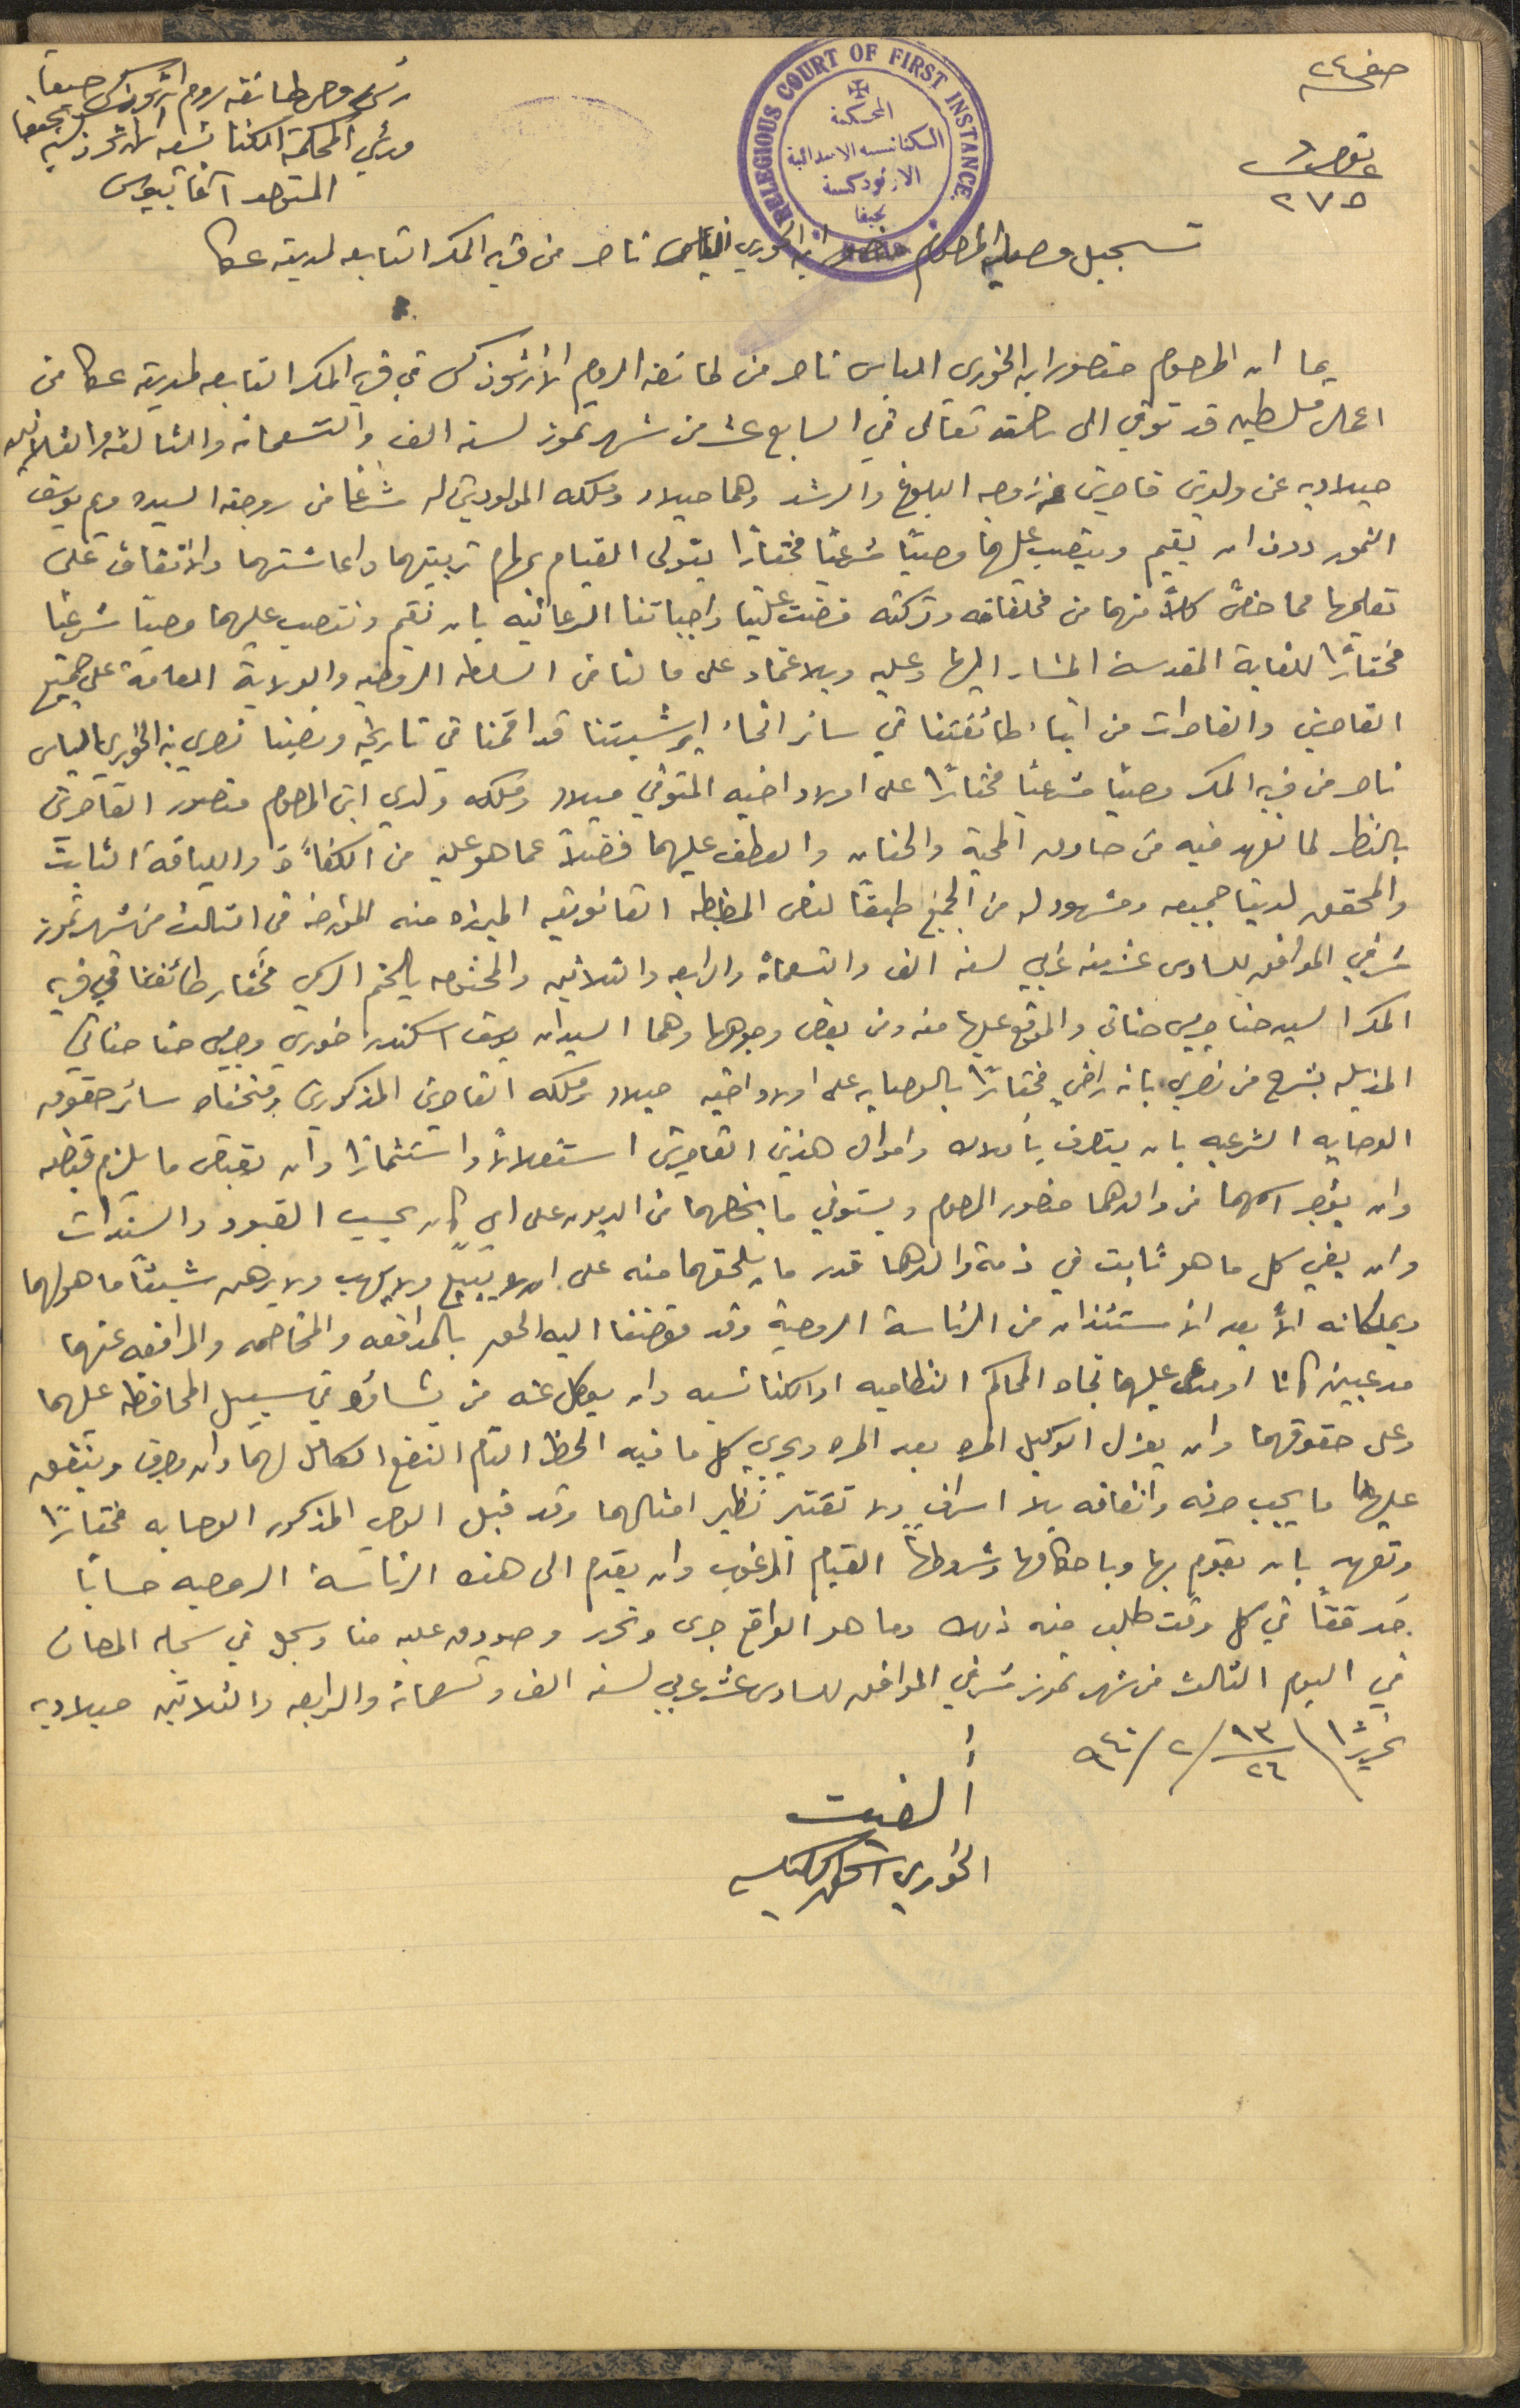 صف ٢٤
نومرو
٢٧٥
رئيس روحي طائفة روم ارثوذكس حيفا
ورئيس المحكمة الكنائسية الارثوذكسية بحيفا
المتوحد آغابيوس
RELEGIOUS COURT OF FIRST INSTANCE
المحكمة
الكنائسيه الابتدائية
الارثوذكسية
بحيفا
تسجيل وصاية المرحوم منصور ابن الخوري الياس ناصر من قرية المكر التابعه لمدينة عكا
بما ان المرحوم منصور ابن الخوري الياس ناصر من طائفة الروم الارثوذكس في قرية المكر التابعه لمدينة عكا من
اعمال فلسطين قد توفي الى رحمته تعالى في السابع عشر من شهر تموز لسنة الف والتسعمائة والثالثة والثلاثين
ميلاديه عن ولدين قاصرين عن درجة البلوغ والرشد وهما ميلاد وملكه المولودين له شرعًا من زوجته السيده مريم يوسف
النمور دون ان يقيم وينصب عليهما وصيًا شرعيًا مختارًا يتولى القيام بمهام تربيتهما واعاشتهما والانفاق على
تعليمها مما خصّ كلاً منهما من مخلفاته وتركته قضت علينا واجباتنا الرعائيه بان نقيم وننصب عليهما وصيًا شرعيًا
مختارًا للغاية المقدسة المشار اليها وعليه وبالاعتماد على ما لنا من السلطه الروحيه والولاية العامة على جميع
القاصرين والقاصرات من ابناء طائفتنا في سائر انحاء ابرشيتنا قد اقمنا في تاريخه ونصبنا نصري بن الخوري الياس
ناصر من قرية المكر وصيًا شرعيًا مختارًا على اولاد اخيه المتوفي ميلاد وملكه ولدي ابن المرحوم منصور القاصرين
بالنظر لما نعهد فيه من صادق المحبة والحنان والعطف عليهما فضلاً عما هو عليه من الكفاءة واللياقة الثابت
والمحقق لدينا جميعه ومشهود له من الجميع طبقًا لنص المضبطه القانونيه المبرزه منه المؤرخه في الثالث من شهر تموز
شرقي الموافق للسادس عشر منه غربي لسنه الف والتسعمائة والرابعه والثلاثين والمختومه بالختم الرسمي مختار طائفتنا في قرية
المكر السيد حنا جريس حناني والموقع عليها منه ومن بعض وجوهها وهما السيدان يوسف اسكندر خوري وجريس حنا حناني
المذيله بشرح من نصري بانه راضٍ مختارًا بالوصايه على اولاد اخيه ميلاد وملكه القاصرين المذكورين ومنحناه سائر حقوق
الوصايه الشرعيه بان يتصرف باملاك واموال هذين القاصرين استغلالاً واستثمارًا وان يقبض ما يلزم قبضه
وان اسمهما من والدهما منصور المرحوم ويستوفي ما يخصهما من الديون على اي كان بحسب القيود والسندات
وان يفي كل ما هو ثابت في ذمة والدهما قدر ما يلحقهما منه على ان لا يبيع ولا يهب ولا يرهن شيئًا ما هو لهما
ويملكانه الا بعد الاستئذان من الرئاسة الروحية وقد فوضنا اليه الحق بالمدافعه والمخاصمه والمرافعه عنهما
مدعيين كانا او مدعى عليهما تجاه المحاكم النظاميه او الكنائسيه وان يوكل عنه من يشاؤه في سبيل المحافظه عليهما
وعلى حقوقهما وان يعزل الوكيل المره بعد المره ويجري كل ما فيه الحظ التام النفع الكامل لهما وان يصرف وينفق
عليهما ما يجب صرفه وانفاقه بلا اسراف ولا تقتير نظير امثالهما وقد قبل الوصي المذكور الوصايه مختارًا
وتعهد بان يقوم بها وباحكامها وشروطها القيام المرغوب وان يقدم الى هذه الرئاسة الروحيه حسابًا
مدققًا في كل وقت طلب منه ذلك وما هو الواقع جرى وتحرر وصودق عليه منا وسجل في سجله المصان
في اليوم الثالث من شهر تموز شرقي الموافق للسادس عشر غربي لسنه الف وتسعمائة والرابعه والثلاثين ميلاديه
تحريرًا ١٣/٢٦/٢/٩٤٠
الخوري